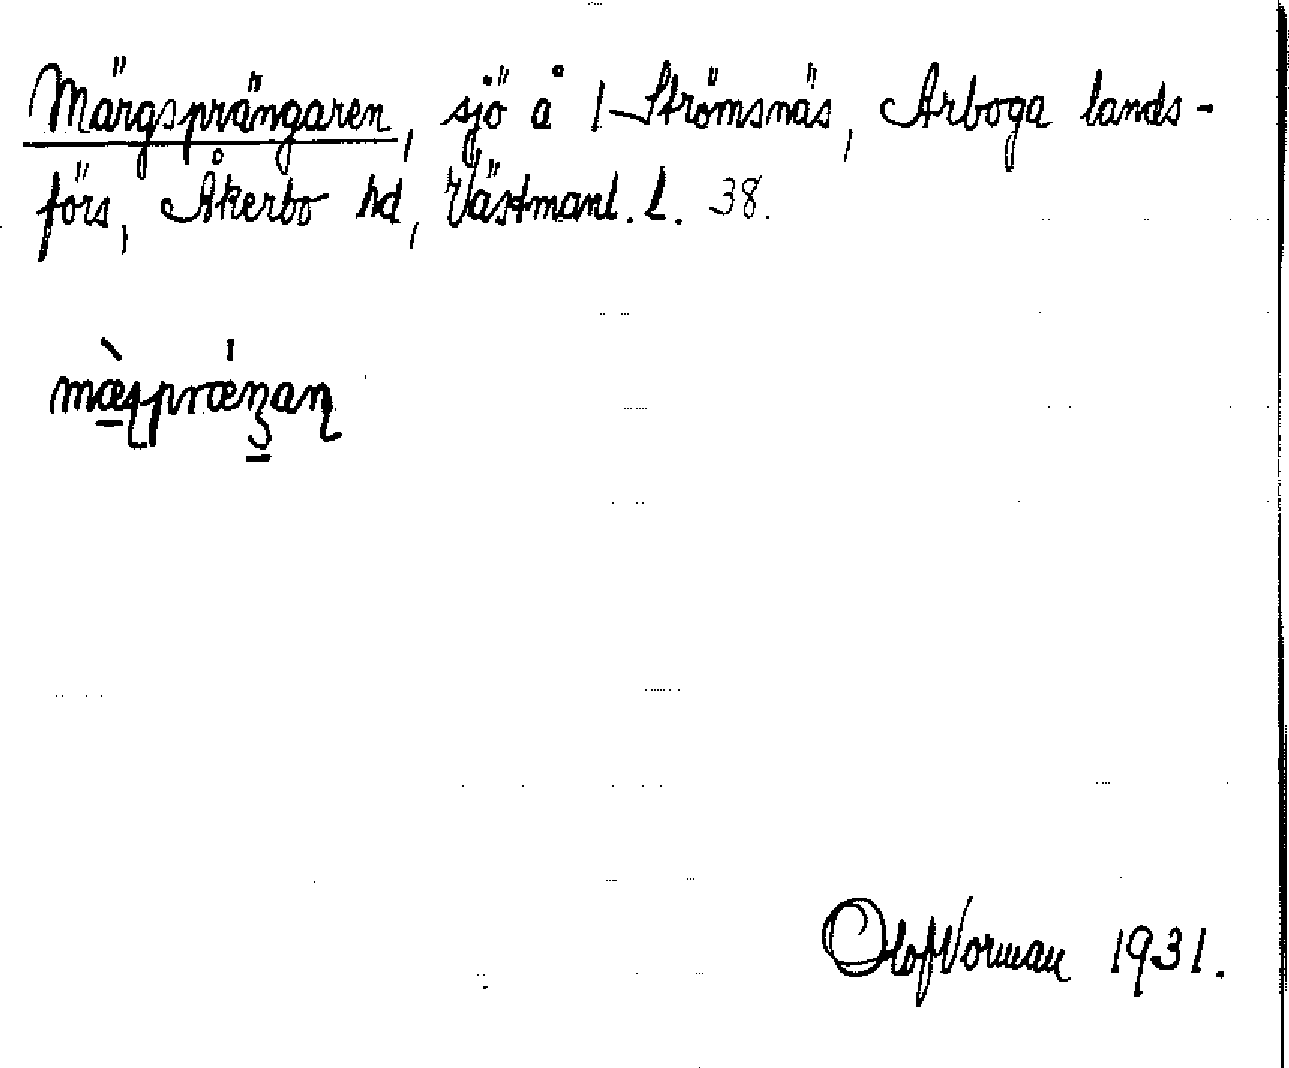 Märgsprängaren, sjö å 1 Strömsnäs, Arboga lands-
förs, Åkerbo hd, Västmanl. L. 38.
Olof Norman 1931.